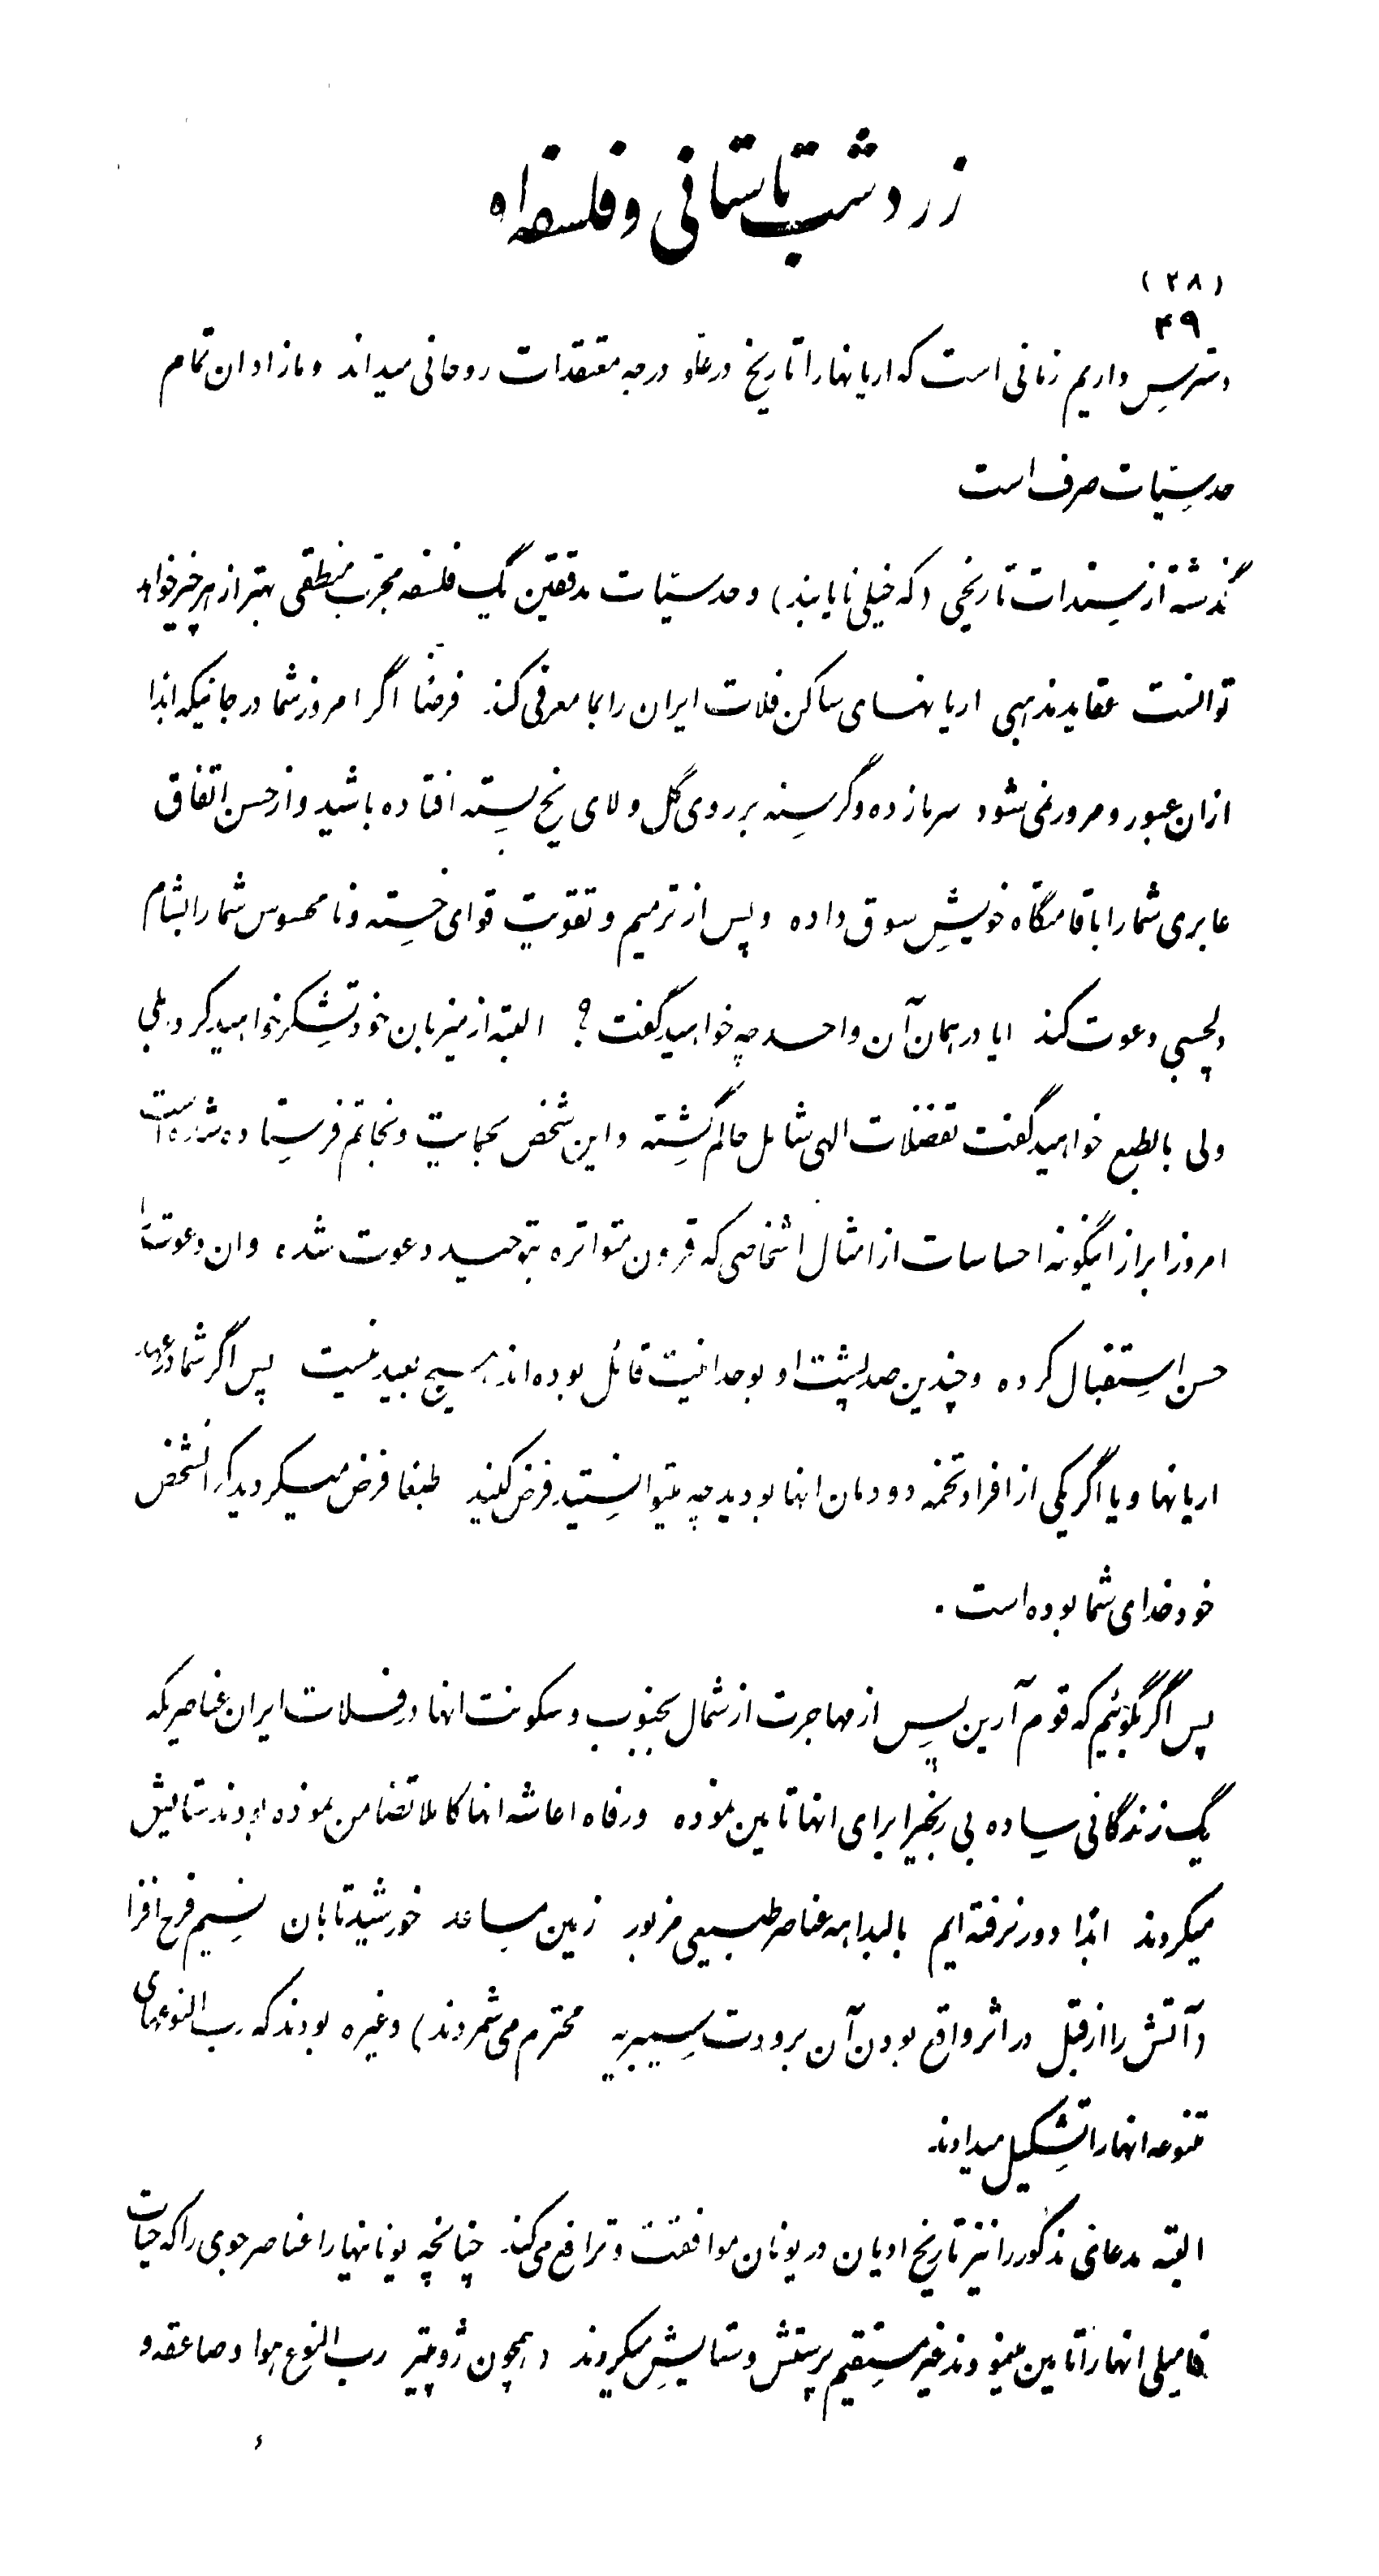 زردشت باستانی و فلسفه او
(۲۸)
۴۹
دسترس داریم زمانی است که اریانها را تاریخ در علو درجه معتقدات روحانی میداند و ماز ادان تمام
حدسیات صرف است
گذشته از سندات تاریخی (که خیلی نایابند) و حدسیات مدققین یک فلسفه مجرب منطقی بهتر از هر چیز خواهد
توانست عقاید مذهبی اریانهای ساکن فلات ایران را بما معرفی کند فرضاً اگر امروز شما در جائیکه ابداً
ازان عبور و مرور نمی شود سرمازده و گرسنه بر روی گل و لای یخ بسته افتاده باشید و از حسن اتفاق
عابری شما را باقامتگاه خویش سوق داده و پس از ترمیم و تقویت قوای خسته و نامحسوس شما را بشام
دلچسپی دعوت کند ایا در همان آن واحد چه خواهید گفت؟ البته از میزبان خود تشکر خواهید کرد بلی
ولی بالطبع خواهید گفت تفضلات الهی شامل حالم گشته و این شخص بحمایت و نجاتم فرستاده شده است
امروز ابراز اینگونه احساسات از امثال اشخاصی که قرون متواتره بتوحید دعوت شده و ان دعوت را
حسن استقبال کرده و چندین صد پشت او بوحدانیت قائل بوده اند هیچ بعید نیست پس اگر شما در عهد
اریانها و یا اگر یکی از افراد تخمه دودمان انها بودید چه میتوانستید فرض کنید طبعاً فرض میکردید که انشخص
خود خدای شما بوده است .
پس اگر بگوئیم که قوم آرین پس از مهاجرت از شمال بجنوب و سکونت انها در فلات ایران عناصریکه
یک زندگانی ساده بی رنجیرا برای انها تامین نموده و رفاه اعاشه انها کاملا تضامن نموده بودند ستایش
میکردند ابداً دور نرفته ایم بالبداهه عناصر طبیعی مزبور زمین مساعد خورشید تابان نسیم فرح افزا
(آتش را از قبل در اثر واقع بودن آن برودت سیبریه محترم می شمردند) و غیره بودند که رب النوعهای
متنوعه انها را تشکیل میدادند
البته مدعای مذکور را نیز تاریخ ادیان در یونان موافقت و ترافع می کند چنانچه یونانیها را عناصر جوی را که حیات
فامیلی انها را تامین مینمودند غیر مستقیم پرستش و ستایش میکردند (همچون ژوپیتر رب النوع هوا و صاعقه و